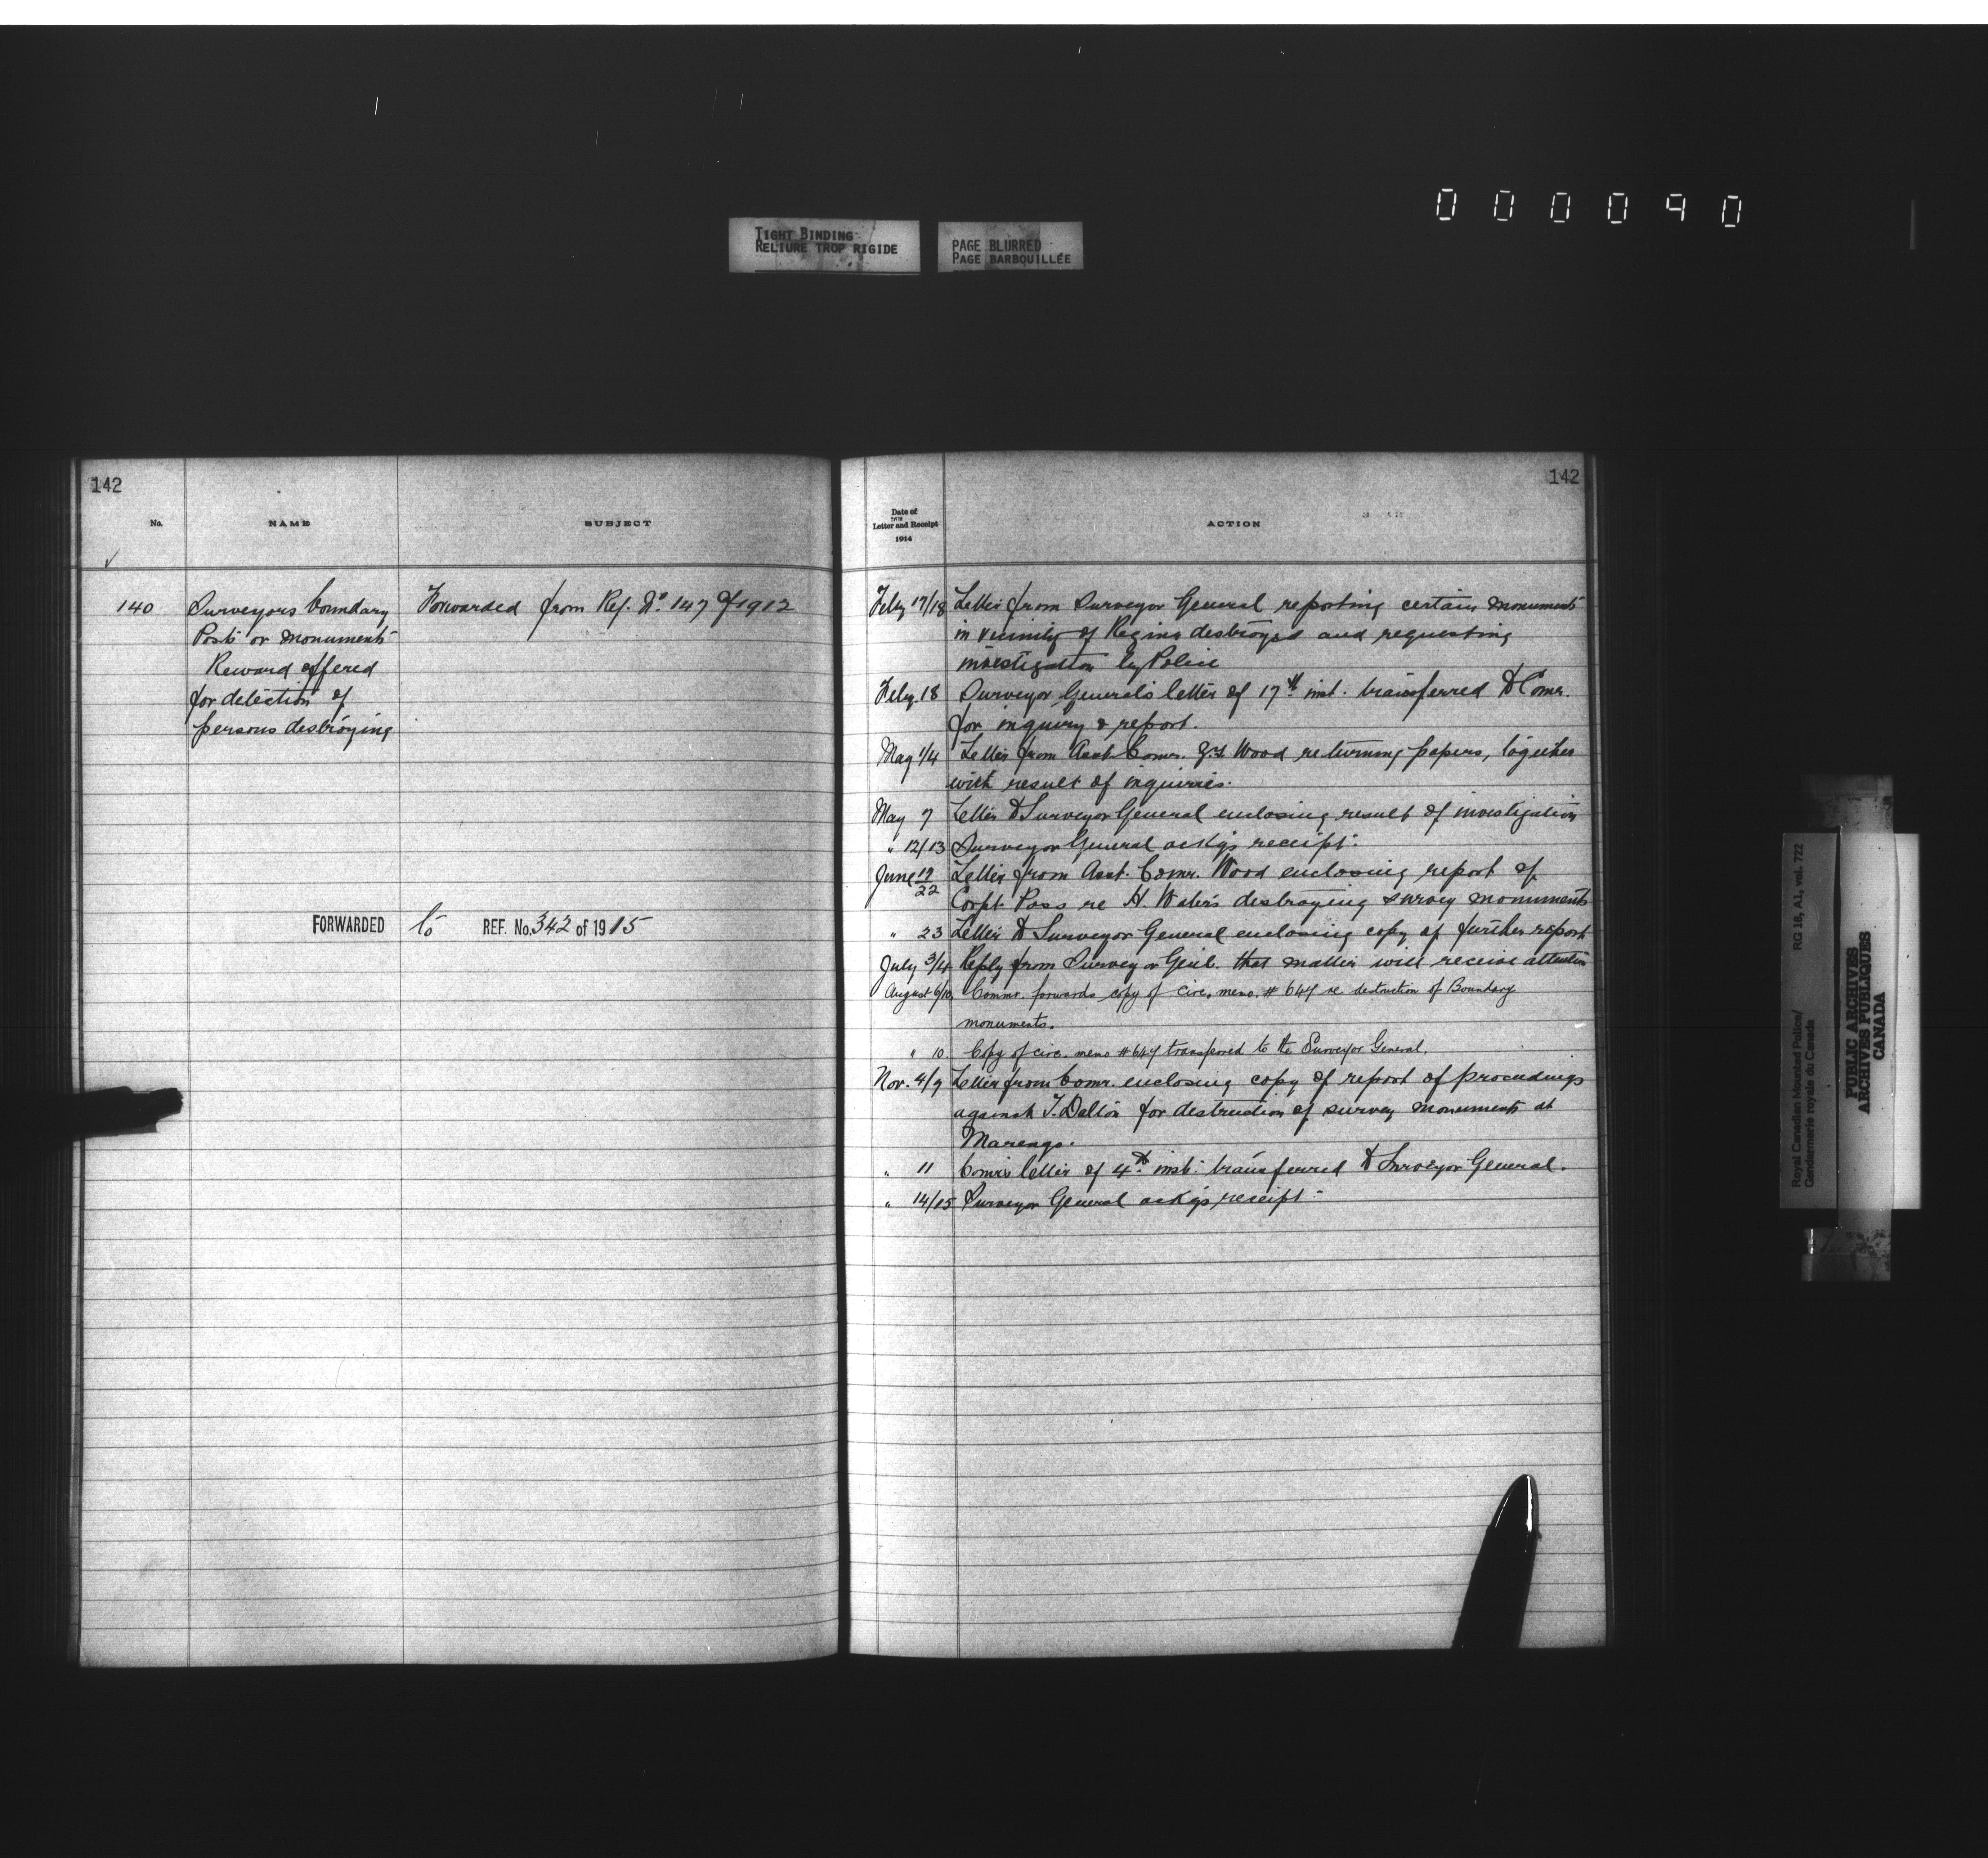 000090
TIGHT BINDING
RELIURE TROP RIGIDE
PAGE BLURRED
PAGE BARBOUILLÉE
142
No.
NAME
SUBJECT
140
Surveyors boundary
Posts or monuments
Reward offered
for detection of
persons destroying
Forwarded from Ref. No. 147 of 1912
FORWARDED to REF. No. 342 of 1915
142
Date of
Letter and Receipt
1914
ACTION
Feby 17/18 Letter from Surveyor General reporting certain monuments
in vicinity of Regina destroyed and requesting
investigation by Police
Feby. 18 Surveyor General's letter of 17th inst. transferred to Comr.
for inquiry & report.
May 1/4 Letter from Asst. Comr. Z.T. Wood returning papers, together
with result of inquiries.
May 7 Letter to Surveyor General enclosing result of investigation
" 12/13 Surveyor General ackgs receipt.
June 19/22 Letter from Asst. Comr. Wood enclosing report of
Corpl. Pass re H. Waters destroying survey monuments
" 23 Letter to Surveyor General enclosing copy of further report
July 3/4 Reply from Surveyor Genl. that matter will receive attention
August 6/10 Commr. forwards copy of circ. memo. # 647 re destruction of Boundary
monuments.
" 10. Copy of circ. memo #647 transferred to the Surveyor General.
Nov. 4/9 Letter from Comr. enclosing copy of report of proceedings
against T. Dalton for destruction of survey monuments at
Marengo.
" 11 Comr's letter of 4th inst. transferred to Surveyor General.
" 14/15 Surveyor General ackgs receipt.
Royal Canadian Mounted Police/ RG 18, A1, vol. 722
Gendarmerie royale du Canada
PUBLIC ARCHIVES
ARCHIVES PUBLIQUES
CANADA